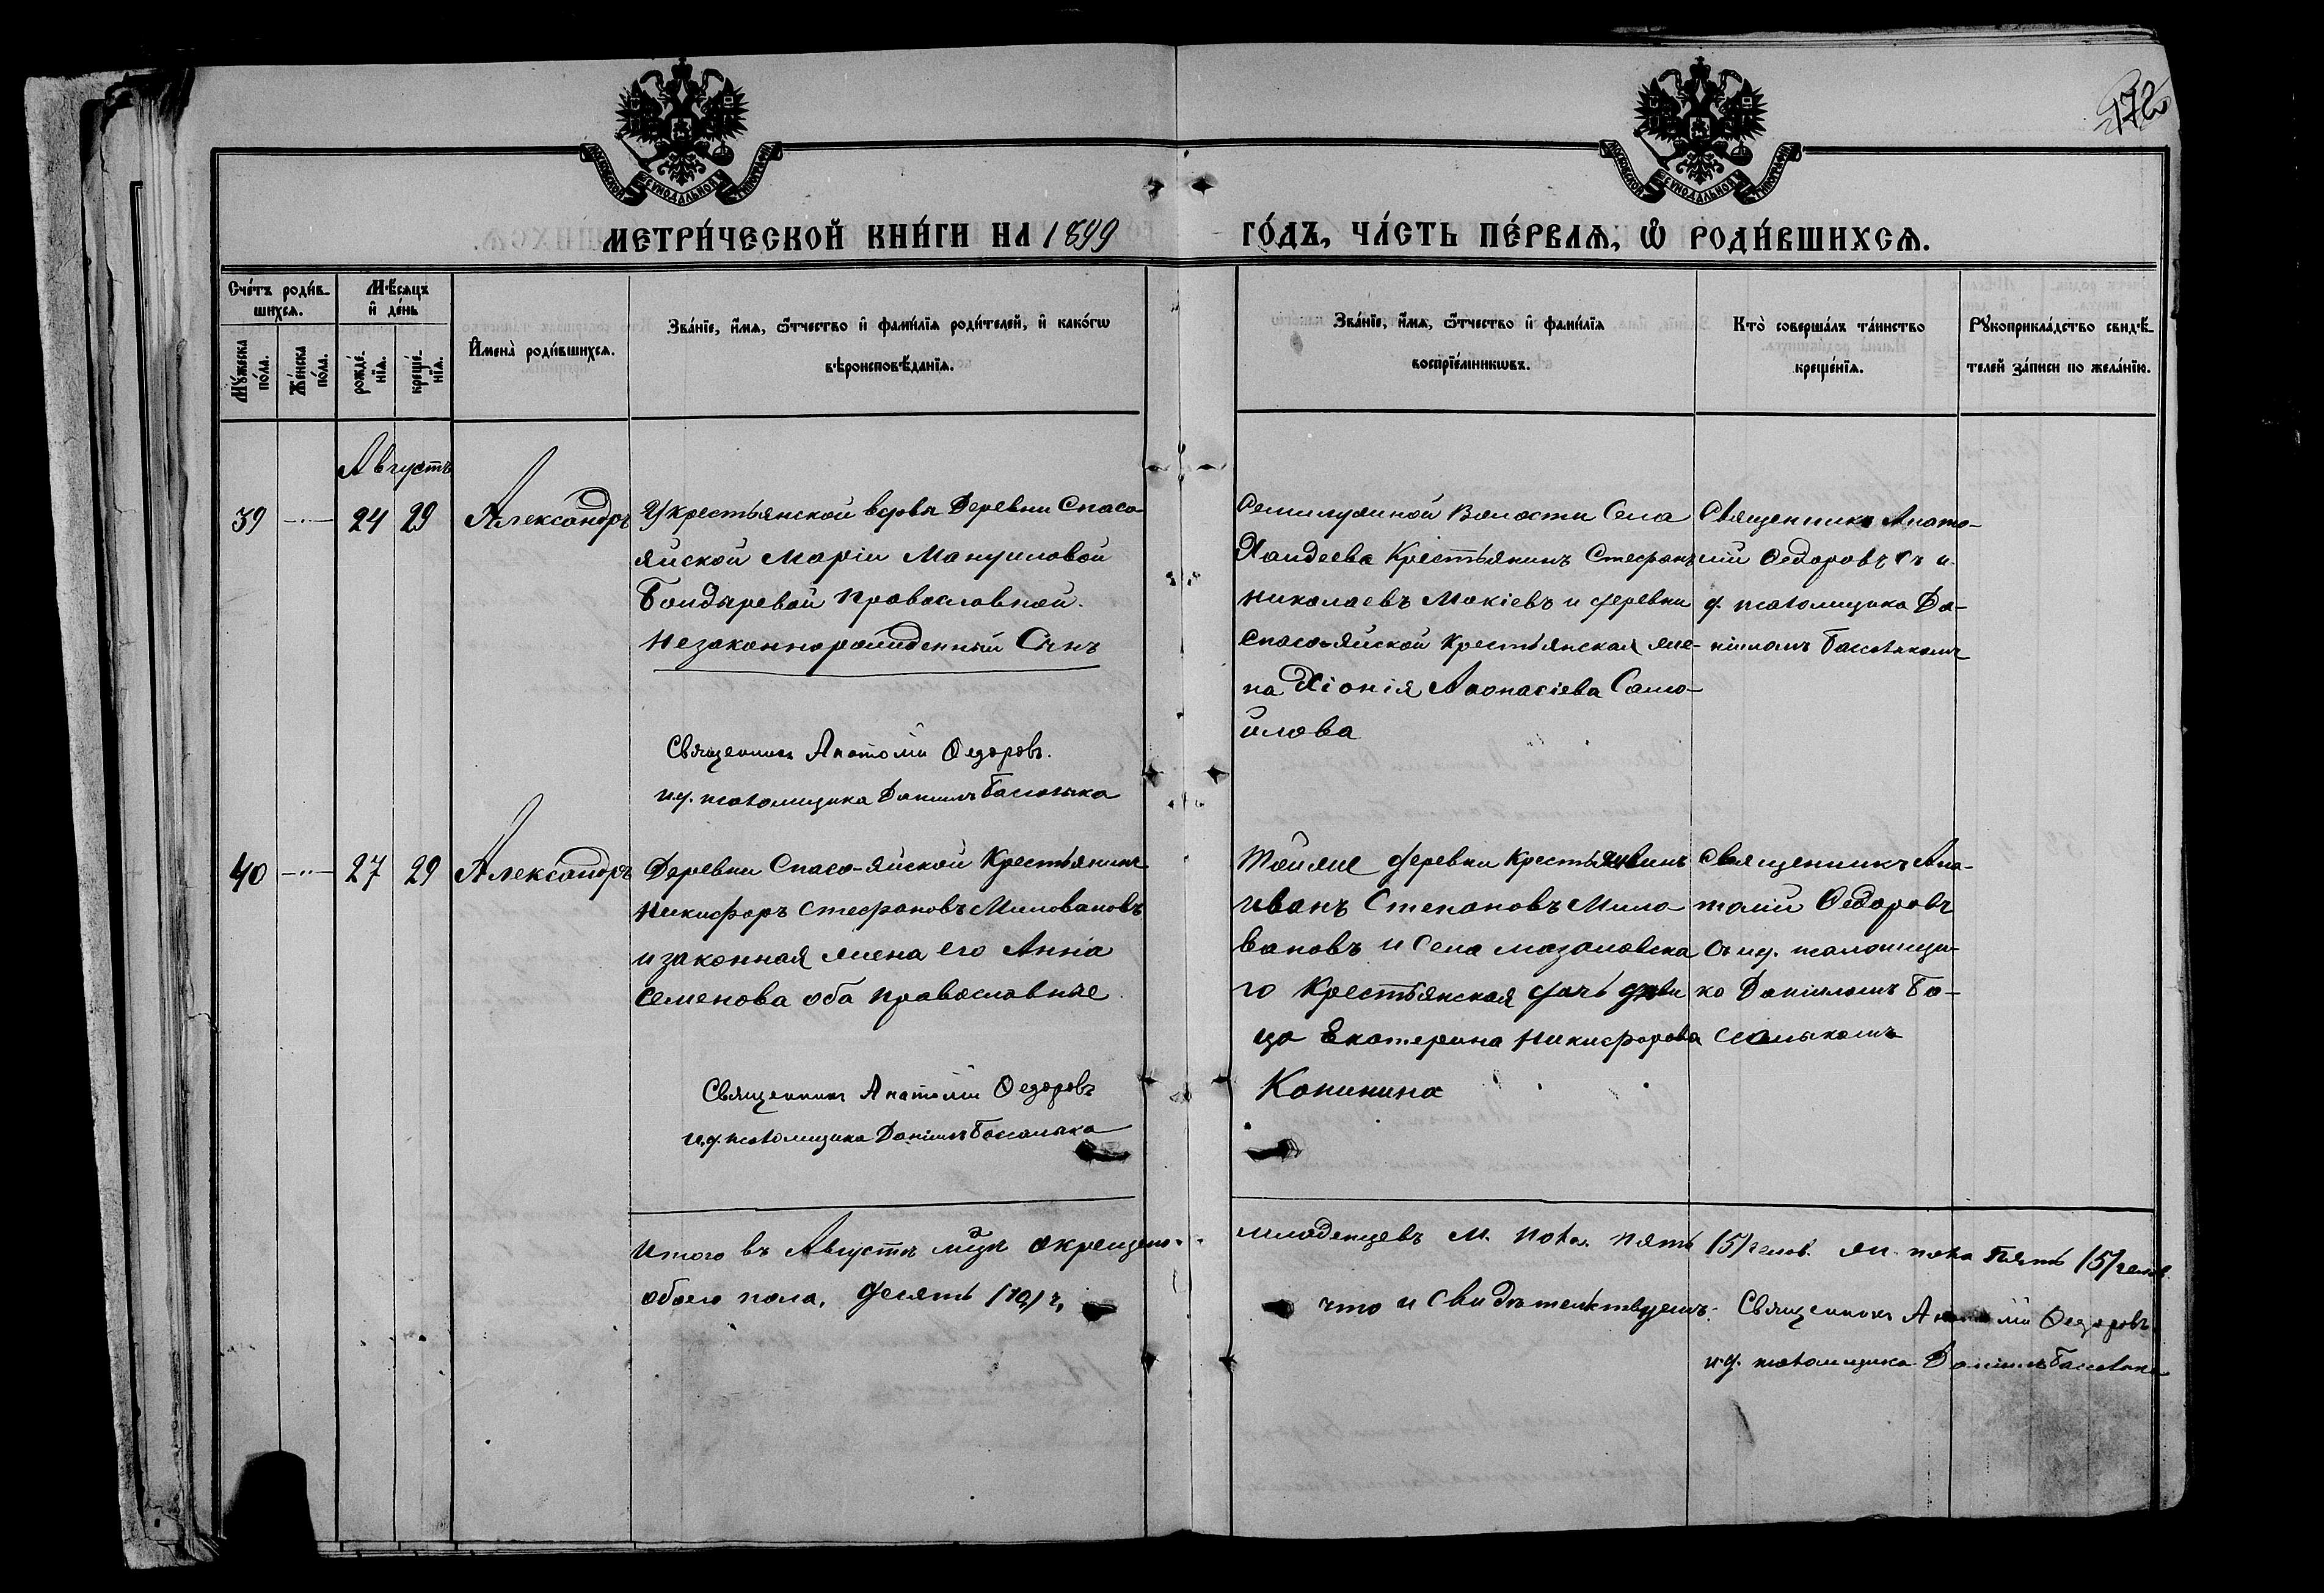 172
МОСКОВСКОЙ СУНОДАЛЬНОЙ ТИПОГРАФІИ
МОСКОВСКОЙ СУНОДАЛЬНОЙ ТИПОГРАФІИ
МЕТРИ́ЧЕСКОЙ КНИ́ГИ НА 1899 ГО́ДЪ, ЧА́СТЬ ПЕ́РВАѦ, Ѽ РОДИ́ВШИХСѦ.
Сче́тъ роди́в-
шихсѧ.
Мѣ́сѧцъ
и҆ де́нь
Мꙋ́жеска
по́ла.
Же́нска
по́ла.
рожде́-
нїѧ.
креще́-
нїѧ.
И҆мена̀ роди́вшихсѧ.
Зва́нїе, и҆́мѧ, ѻ҆́тчество и҆ фами́лїѧ роди́телей, и҆ како́гѡ
вѣроисповѣ́данїѧ.
Зва́нїе, и҆́мѧ, ѻ҆́тчество и҆ фами́лїѧ
воспрїе́мникѡвъ.
Кто̀ соверша́лъ та́инство
креще́нїѧ.
Рꙋкоприкла́дство свидѣ́-
телей за́писи по жела́нїю.
Августъ
39 24 29 Александръ
У крестьянской вдовы Деревни Спасо-
яйской Маріи Мануиловой
Бондыревой православной.
Незаконнорожденный Сынъ
Священникъ Анатолій Ѳедоровъ.
и.д. псаломщика Даніилъ Басалыка
Семилужной Волости Села
Халдеева Крестьянинъ Стефанъ
Николаевъ Мокіевъ и деревни
Спасо-яйской Крестьянская же-
на Хіонія Аѳонасіева Само-
йлова
Священникъ Анато-
лій Ѳедоровъ съ и.
д. псаломщика Да-
ніиломъ Басалыкомъ
40 27 29 Александръ
Деревни Спасо-яйской Крестьянинъ
Никифоръ Стефановъ Миловановъ
и законная жена его Анна
Семенова оба православные
Священникъ Анатолій Ѳедоровъ
и.д. псаломщика Даніилъ Басалыка
Той же деревни Крестьянинъ
Иванъ Степановъ Мило
вановъ и села Мазаловска
го Крестьянская дочь дѣви
ца Екатерина Никифорова
Конинина
Священникъ Ана-
толій Ѳедоровъ
съ и.д. псаломщи-
ка Даніиломъ Ба-
салыкомъ
Итого въ Августѣ м-цѣ окрещено младенцевъ м. пола пять /5/ челов. жен. пола пять /5/ челов.
обоего пола, десять /10/ ч, что и свидѣтельствуемъ: Священникъ Анатолій Ѳедоровъ
и.д. псаломщика Даніилъ Басалыка